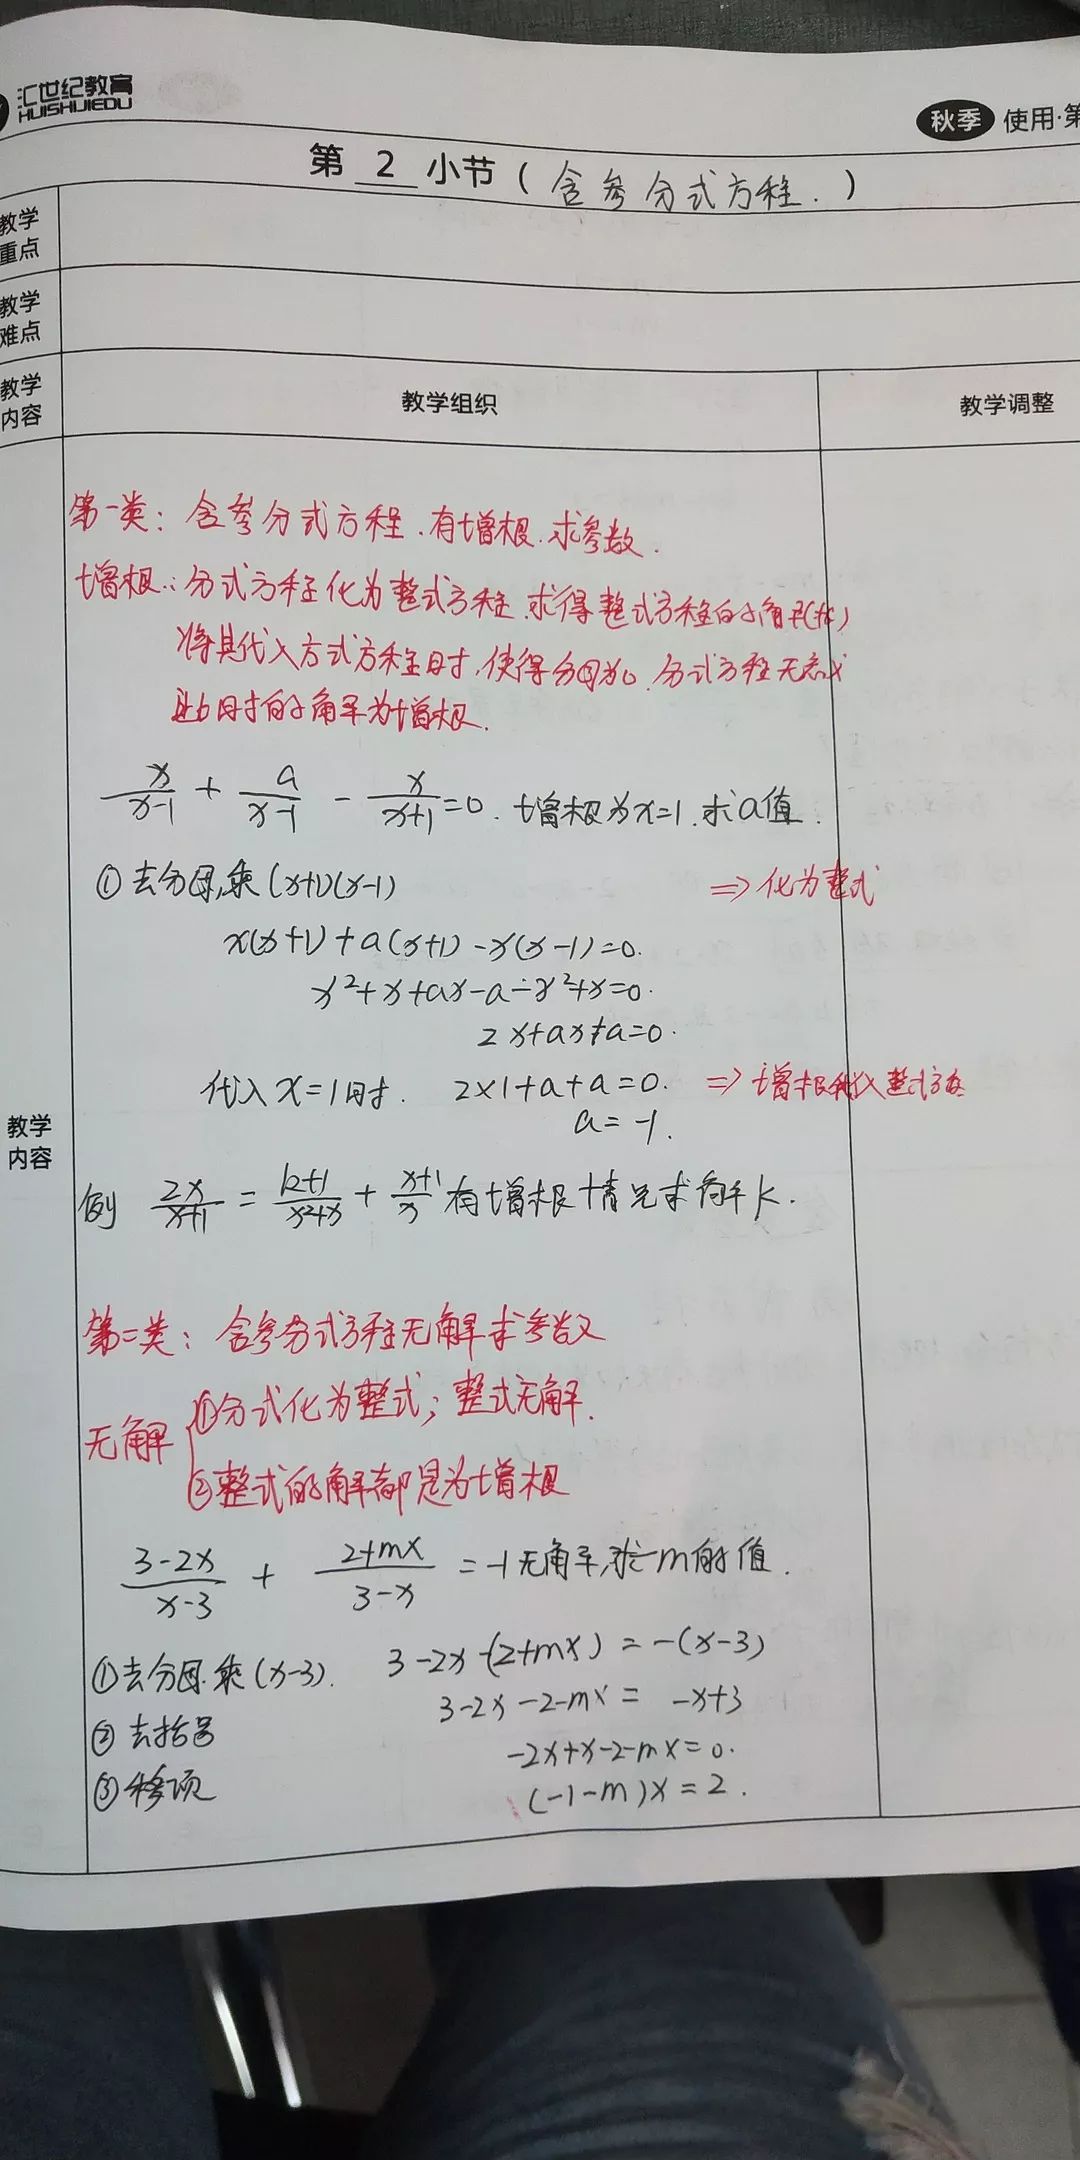 汇世纪教育
HUISHIJIEDU
秋季 使用·第
第 2 小节(含参分式方程.)
教学重点
教学难点
教学内容 教学组织 教学调整
第一类: 含参分式方程.有增根.求参数.
增根: 分式方程化为整式方程.求得整式方程的解
将其代入方式方程时,使得分母为0.分式方程无意义
此时的解为增根.
x/(x-1) + a/(x-1) - x/(x+1) = 0. 增根为x=1.求a值.
①去分母,乘(x+1)(x-1) ⇒化为整式
x(x+1)+a(x+1)-x(x-1)=0.
x²+x+ax-a-x²+x=0.
2x+ax+a=0.
代入x=1时. 2×1+a+a=0. ⇒增根代入整式方程
a=-1.
教学内容
例 2x/(x+1) = (k+1)/(x²+x) + (x+1)/x 有增根情况求解k.
第二类: 含参分式方程无解求参数
无解 ①分式化为整式;整式无解.
②整式的解都是为增根
(3-2x)/(x-3) + (2+mx)/(3-x) = -1无解,求m的值.
①去分母.乘(x-3). 3-2x-(2+mx)=-(x-3)
3-2x-2-mx= -x+3
②去括号
-2x+x-2-mx=0.
③移项 (-1-m)x=2.